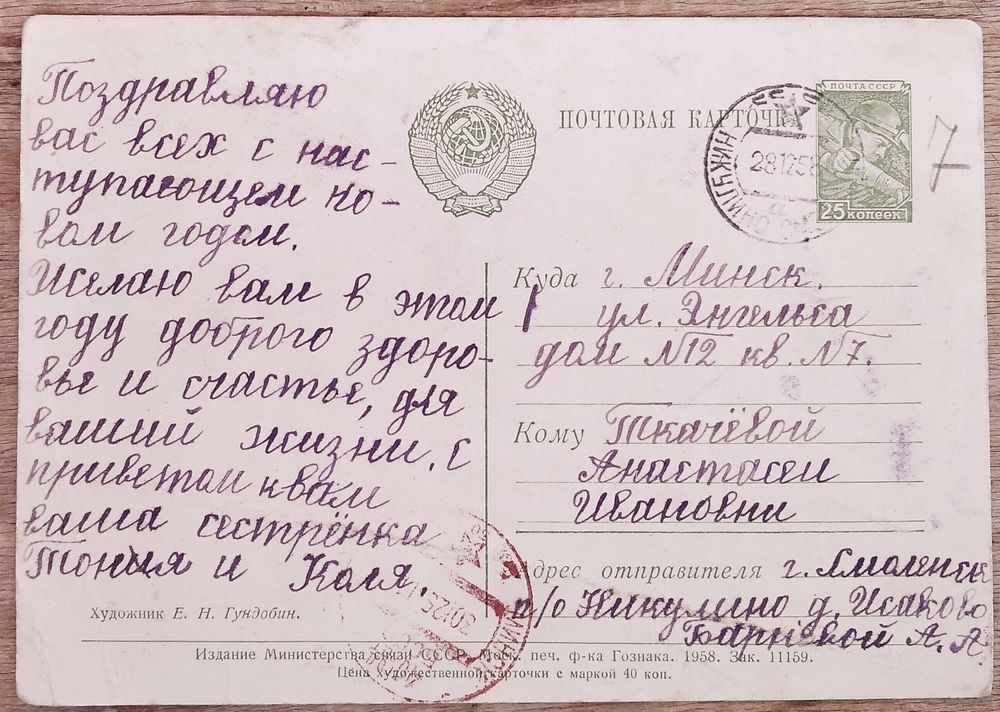 Поздравляю
вас всех с нас-
тупающем но-
вом годом.
Желаю вам в этом
году доброго здоро-
вье и счастье, для
ваший жизни. с
приветом квам
ваша сестрёнка
Тония и Коля.
Художник Е. Н. Гундобин.
ПОЧТОВАЯ КАРТОЧКА
ПОЧТА СССР
25 КОПЕЕК
281258
7
Куда г. Минск.
ул. Энгельса
дом №12 кв. №7.
Кому Ткачёвой
Анастасеи
Ивановни
Адрес отправителя г. Смоленск
п/о Никулино д. Исаково
Барневой А. А.
Издание Министерства связи СССР. Моск. печ. ф-ка Гознака. 1958. Зак. 11159.
Цена художественной карточки с маркой 40 коп.